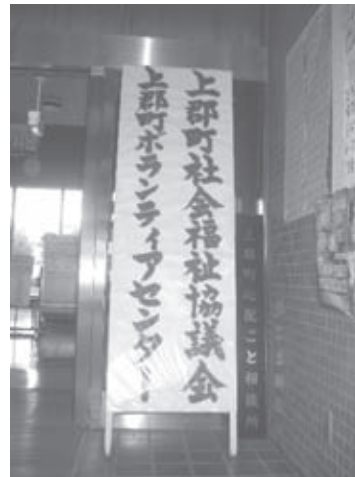 上郡町社会福祉協議会
上郡町ボランティアセンター
上郡町心配ごと相談所